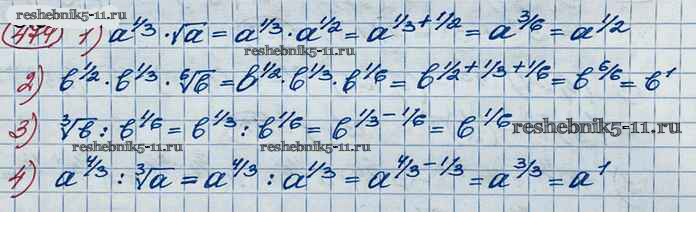 reshebnik5-11.ru reshebnik5-11.ru
474) 1) a^1/3 · √a = a^1/3 · a^1/2 = a^1/3+1/2 = a^3/6 = a^1/2
reshebnik5-11.ru
2) b^1/2 · b^1/3 · ⁶√b = b^1/2 · b^1/3 · b^1/6 = b^1/2+1/3+1/6 = b^6/6 = b^1
reshebnik5-11.ru
3) ³√b : b^1/6 = b^1/3 : b^1/6 = b^1/3-1/6 = b^1/6 reshebnik5-11.ru
reshebnik5-11.ru reshebnik5-11.ru
4) a^4/3 : ³√a = a^4/3 : a^1/3 = a^4/3-1/3 = a^3/3 = a^1
reshebnik5-11.ru